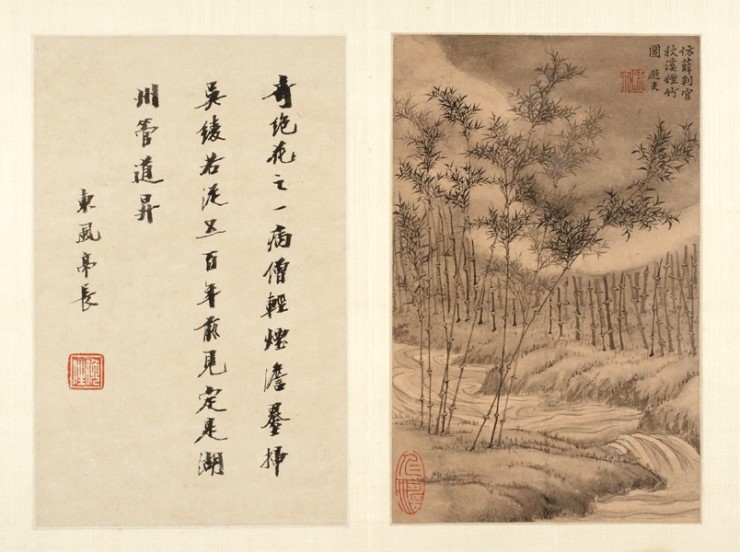 仿薛判官
秋溪煙竹
圖 遯夫
奇絶花之一病僧輕煙澹墨掃
吳綾若從五百年前見定是湖
州管道昇
東風亭長